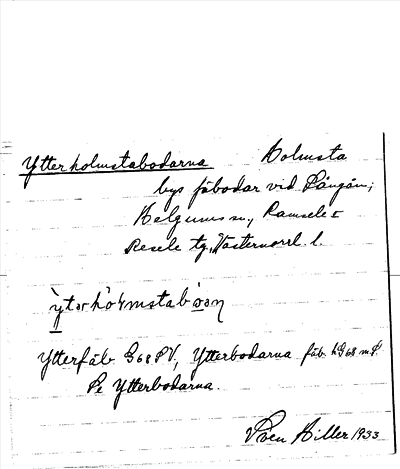 Ytterholmstabodarna Holmsta
bys fäbodar vid Långån;
Helgums sn, Ramsele &
Resele tg, Västernorrl. l.
Ytterfäb. G68PV, Ytterbodarna fäb. hG68 m.P.
Pe Ytterbodarna.
Sven Hiller 1933